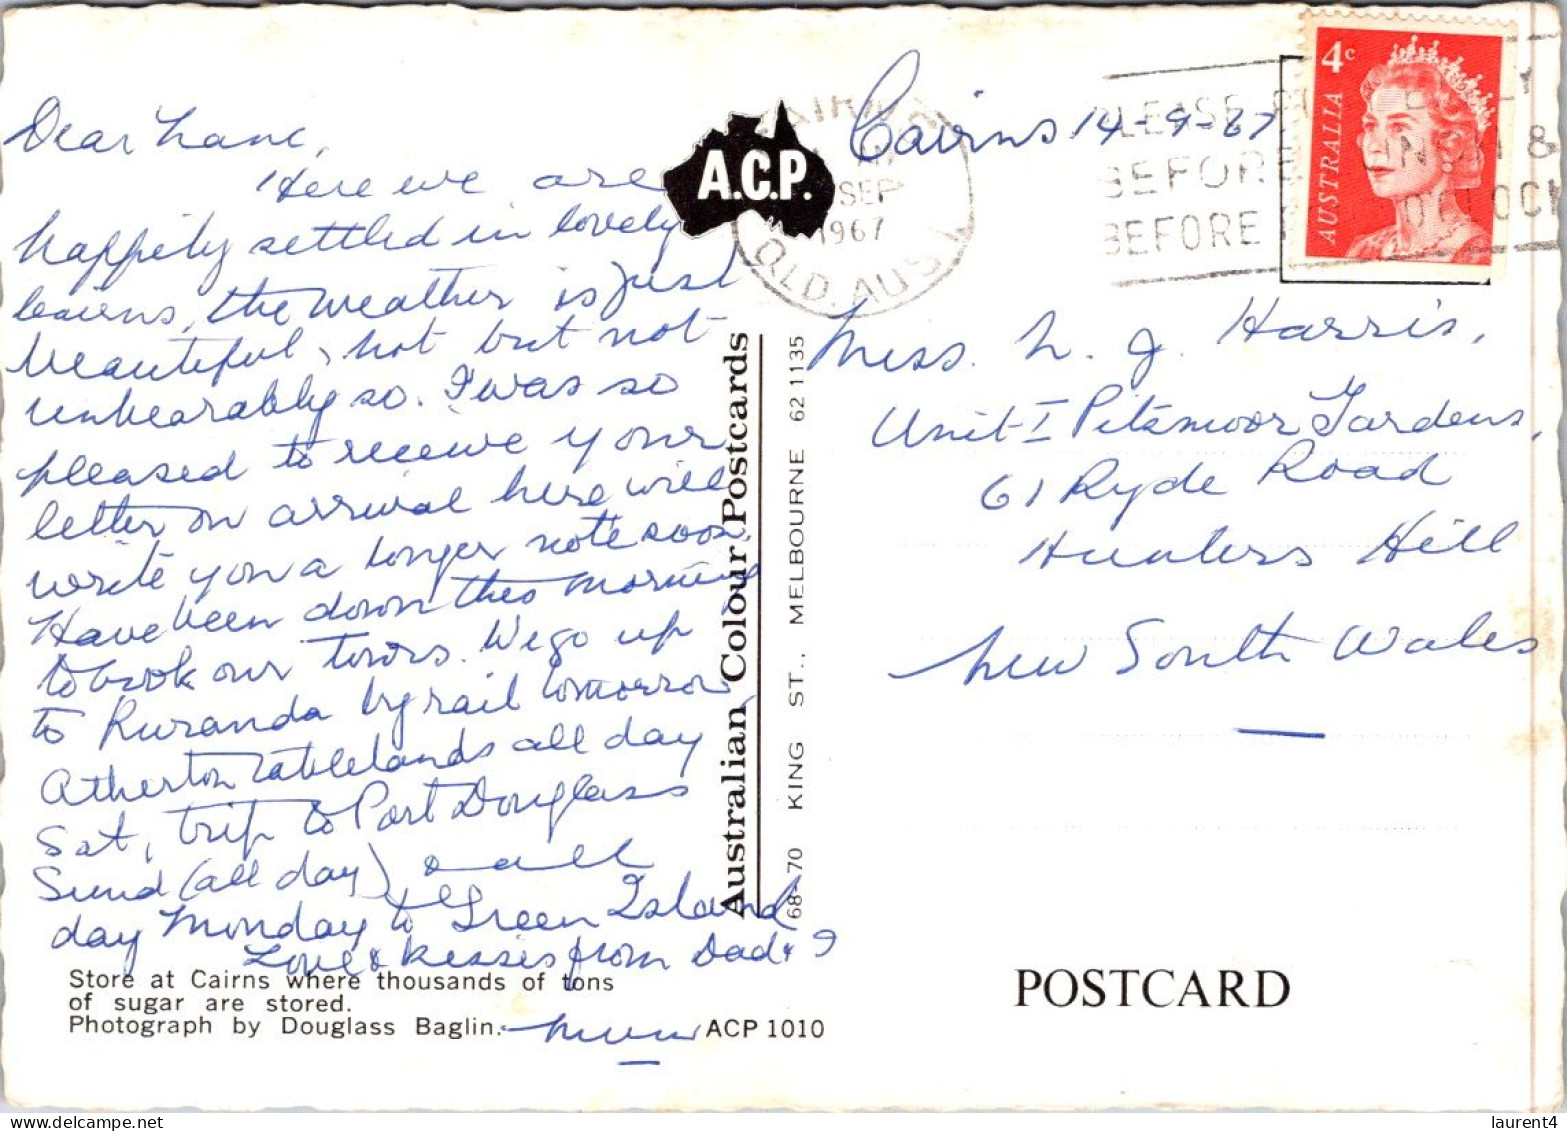 Cairns 14-9-67
Dear
Here we are
happily settled in lovely
Cairns, the weather is just
beautiful, hot but not
unbearably so. I was so
pleased to receive your
letter on arrival here will
write you a longer note soon.
Have been down this morning
to book our tours. We go up
to Kuranda by rail tomorrow,
Atherton Tablelands all day
Sat, trip to Port Douglass
Sund (all day) & all
day Monday to Green Island
Love & kisses from Dad &
Mum
Store at Cairns where thousands of tons
of sugar are stored.
Photograph by Douglass Baglin.
ACP 1010
A.C.P.
Australian Colour Postcards
68-70 KING ST., MELBOURNE 62 1135
CAIRNS
SEP
1967
QLD. AUST
PLEASE
BEFORE
BEFORE
O'CLOCK
4c
AUSTRALIA
Miss. N. J. Harris,
Unit I Pitzmoor Gardens,
61 Ryde Road
Hunters Hill
New South Wales
POSTCARD
laurent4